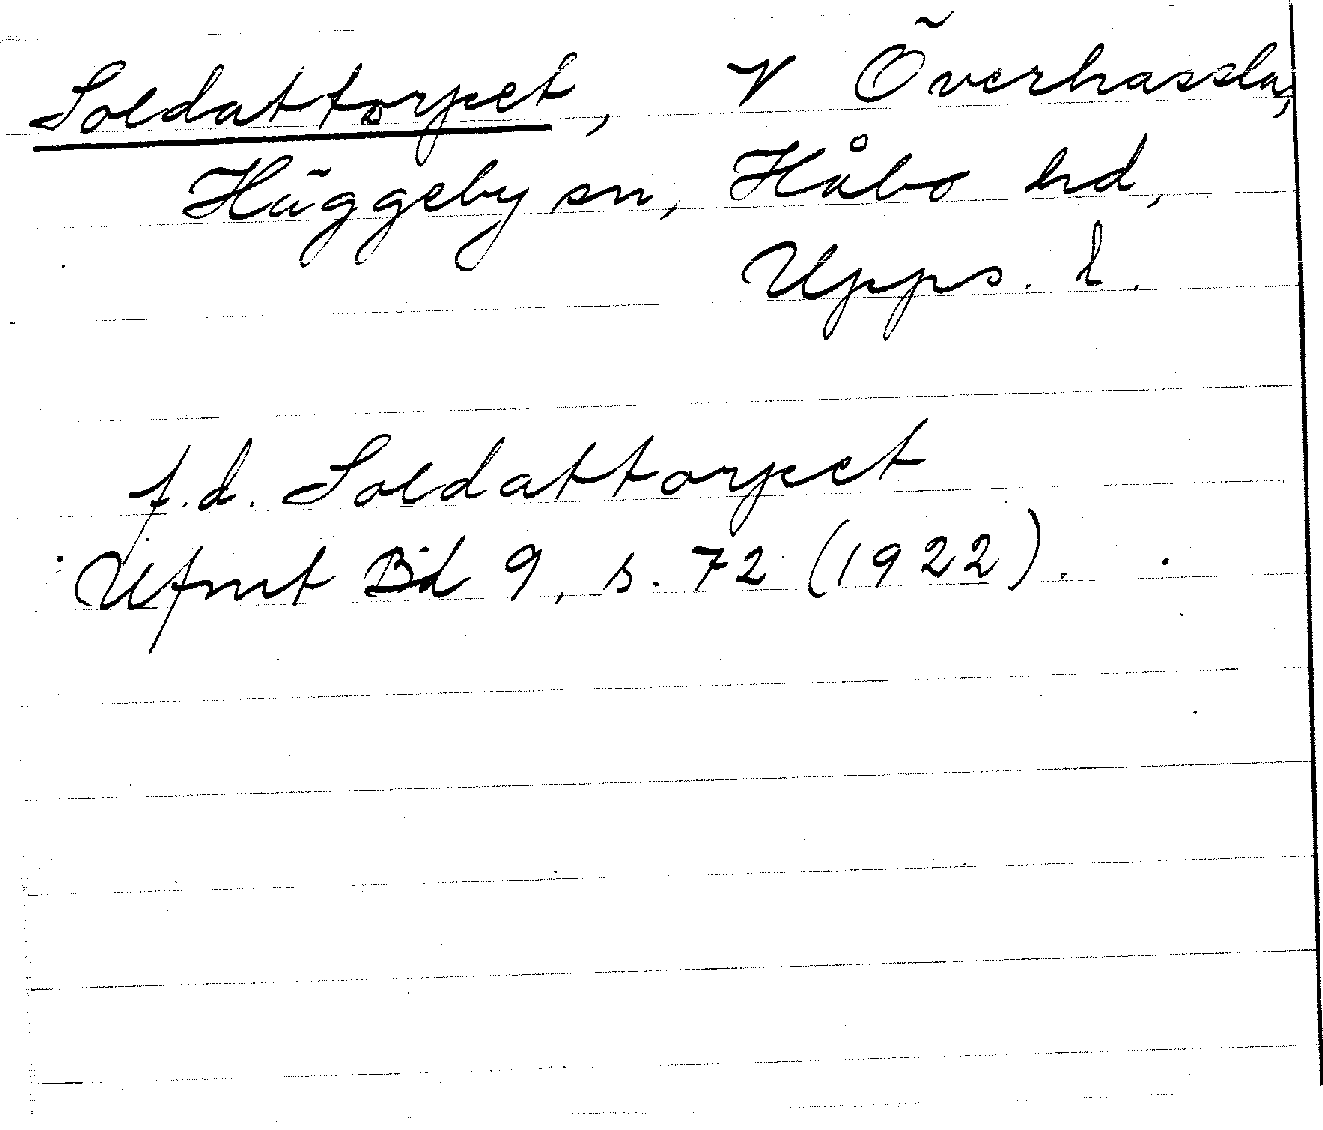 Soldattorpet, V Överhassla,
Häggeby sn, Håbo hd,
Upps. l.
f.d. Soldattorpet
Ufmt Bd 9, s. 72 (1922).